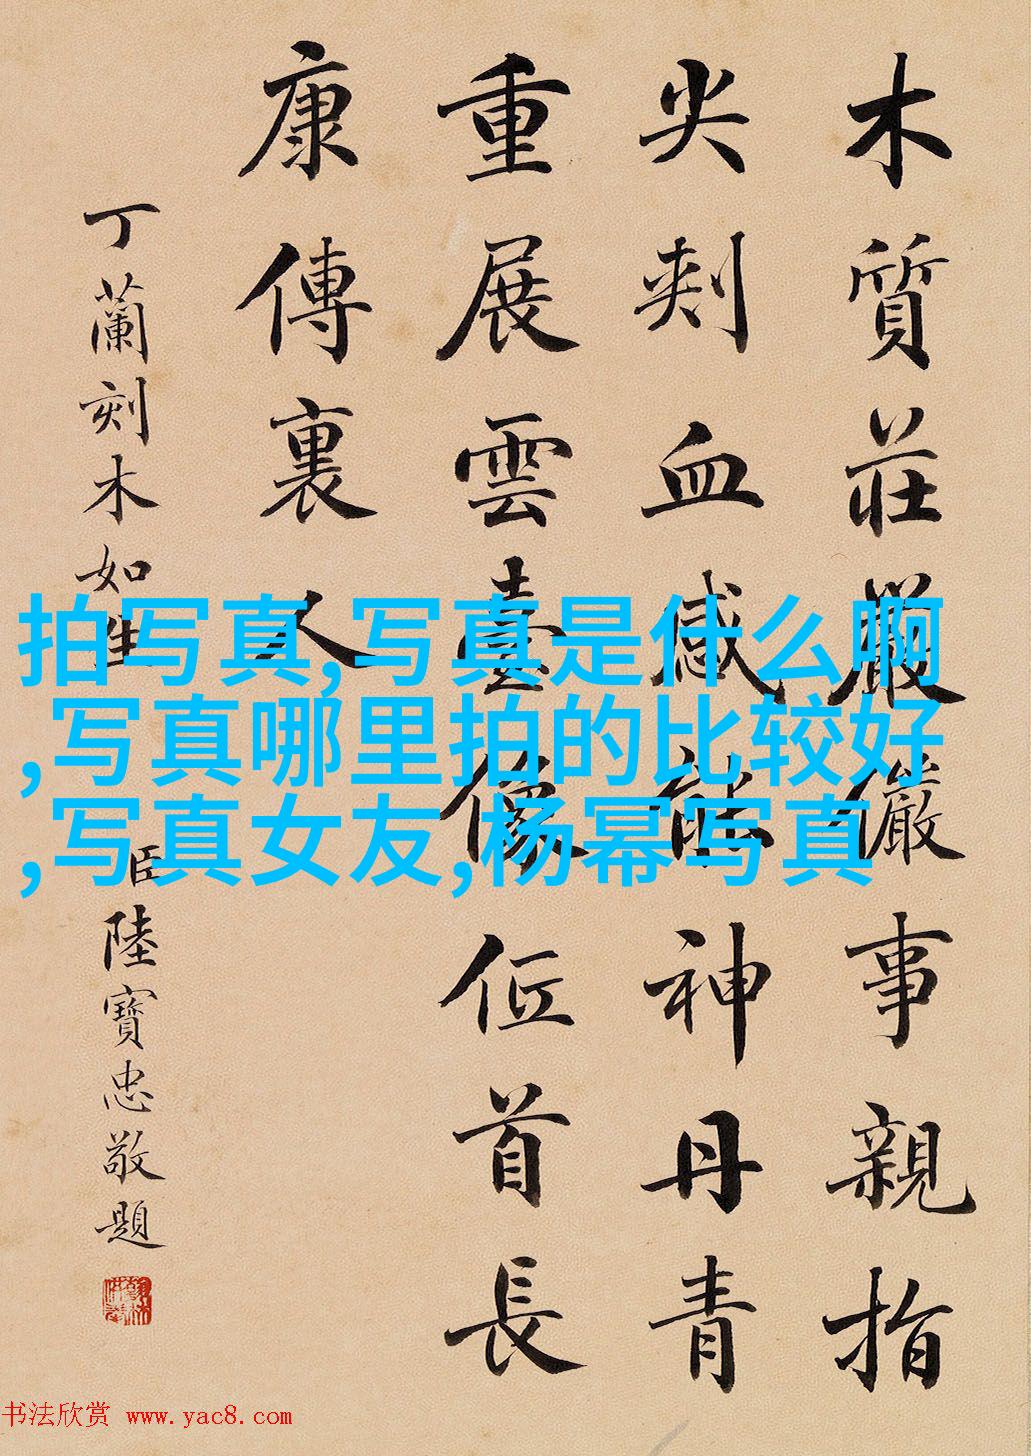 木質莊嚴儼事親指
尖刾血感能神丹青
重展雲臺像位首長
康傳裏人
丁蘭刻木如生
臣陸寶忠敬題
拍写真,写真是什么啊
,写真哪里拍的比较好
,写真女友,杨幂写真
书法欣赏 www.yac8.com